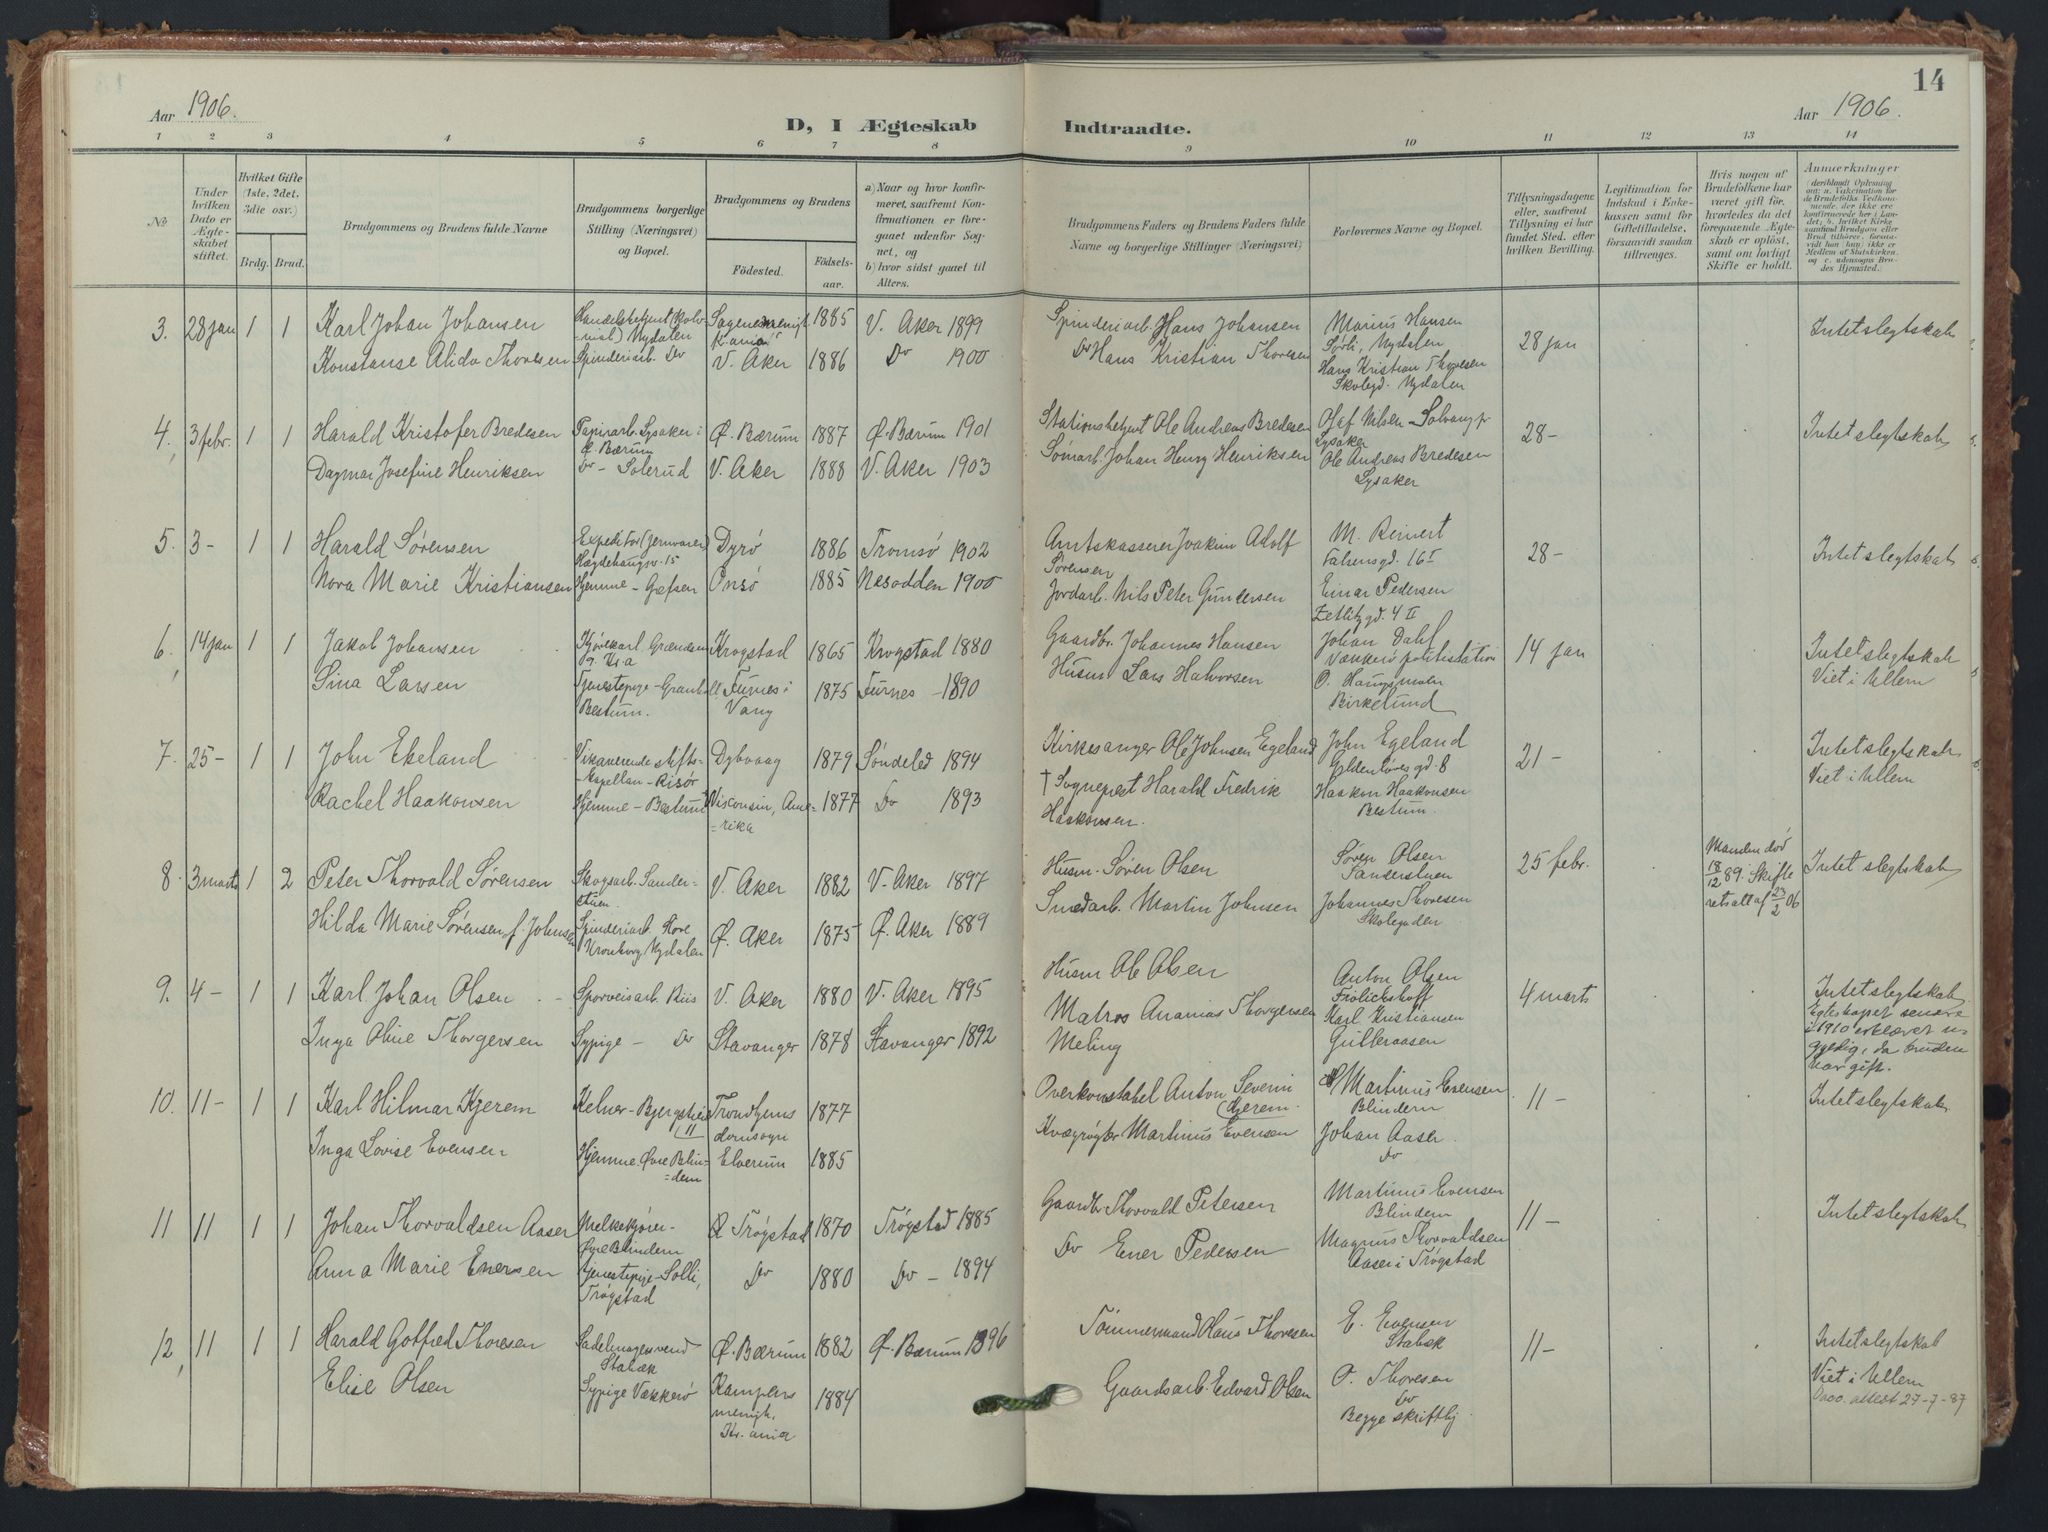 14
Aar 1906.
D, I Ægteskab Indtraadte.
Aar 1906.
1 2 3 4 5 6 7 8 9 10 11 12 13 14
No
Under hvilken Dato er Ægteskabet stiftet.
Hvilket Gifte (1ste, 2det, 3die osv.)
Brdg. Brud.
Brudgommens og Brudens fulde Navne
Brudgommens borgerlige Stilling (Næringsvei) og Bopæl.
Brudgommens og Brudens
Fødested.
Fødsels-aar.
a) Naar og hvor konfirmeret, saafremt Konfirmationen er foregaaet udenfor Sognet, og
b) hvor sidst gaaet til Alters.
Brudgommens Faders og Brudens Faders fulde Navne og borgerlige Stillinger (Næringsvei)
Forlovernes Navne og Bopæl.
Tillysningsdagene eller, saafremt Tillysning ei har fundet Sted, efter hvilken Bevilling.
Legitimation for Indskud i Enkekassen samt for Giftetilladelse, forsaavidt saadan tiltrænges.
Hvis nogen af Brudefolkene har været gift før, hvorledes da det foregaaende Ægteskab er opløst, samt om lovligt Skifte er holdt.
Anmærkninger
3. 28 jan 1 1 Karl Johan Johansen
Handelsbetjent (Kolonial) Nydalen
1885 V. Aker 1899
Spinderiarb. Hans Johansen
Marius Hansen
Sørli, Nydalen
28 jan
Intet slegtskab
Konstanse Alida Thoresen
Spinderiarb. Do
V. Aker 1886 Do 1900
Do Hans Kristian Thoresen
Hans Kristian Thoresen
Skolegd. Nydalen
4. 3 febr. 1 1 Harald Kristofer Bredesen
Papirarb. Lysaker i Ø. Bærum
Ø. Bærum 1887 Ø. Bærum 1901
Stationsbetjent Ole Andreas Bredesen
Olaf Nilsen - Solvang pr Lysaker
28-
Intet slegtskab
Dagmar Josefine Henriksen
Do - Solerud
V. Aker 1888 V. Aker 1903
Sømarb. Johan Henry Henriksen
Ole Andreas Bredesen
Lysaker
5. 3- 1 1 Harald Sørensen
Expeditør (Jernvarer) Hægdehaugsv. 15
Dyrø 1886 Tromsø 1902
Amtskasserer Joakim Adolf Sørensen
M. Reinert
Falsensgd. 16 I
28-
Intet slegtskab
Nora Marie Kristiansen
Hjemme - Grefsen
Onsø 1885 Nesodden 1900
Jordarb. Nils Peter Gundersen
Einar Pedersen
Zetlitzgd. 4 II
6. 14 jan 1 1 Jakob Johansen
Krogstad 1865 Krogstad 1880
Gaardbr. Johannes Hansen
Johan Dahl
Vækkerø politistation
14 jan
Intet slegtskab
Viet i Ullern
Sina Larsen
Tjenestepige - Granholt Bestum.
Furnes i Vang 1875 Furnes - 1890
Husm Lars Halvorsen
O. Haugsmoen
Birkelund
7. 25- 1 1 John Ekeland
Vikarierende stiftskapellan - Risør
Dybvaag 1879 Søndeled 1894
Kirkesanger Ole Johnsen Egeland
John Egeland
Gyldenløves gd. 8
21-
Intet slegtskab
Viet i Ullern
Rachel Haakonsen
Hjemme - Bestum
Visconsin, Amerika 1877 Do 1893
† Sogneprest Harald Fredrik Haakonsen.
Haakon Haakonsen
Bestum.
8. 3 marts 1 2 Peter Thorvald Sørensen
Skogsarb. Sanderstuen.
V. Aker 1882 V. Aker 1897
Husm. Søren Olsen
Søren Olsen
Sanderstuen
25 febr.
Manden død 18/12 89. Skifteretsatt af 23/2 06
Intet slegtskab
Hilda Marie Sørensen f. Johnsen
Spinderiarb. Store Kroneborg Nydalen
Ø. Aker 1875 Ø. Aker 1889
Smedarb. Martin Johnsen
Johannes Thoresen
Skolegaden
9. 4- 1 1 Karl Johan Olsen
Sporveisarb. Riis
V. Aker 1880 V. Aker 1895
Husm Ole Olsen
Anton Olsen
Frölichshoff
4 marts
Intet slegtskab
Egteskapet senere i 1910 erklæret ugyldig, da bruden var gift.
Inga Oline Thorgersen
Sypige - Do
Stavanger 1878 Stavanger 1892
Matros Ananias Thorgersen Meling
Karl Kristiansen
Gulleraasen
10. 11- 1 1 Karl Hilmar Kjerem
Kelner - Bjergstien 11
Trondhjems domsogn 1877
Overkonstabel Anton Severin Kjerem.
Martinus Evensen
Blindern
11-
Intet slegtskab
Inga Lovise Evensen
Hjemme Øvre Blindern
Elverum 1885
Kvægrøgter Martinus Evensen
Johan Aaser.
Do
11 11 1 1 Johan Thorvaldsen Aaser
Melkekjører - Øvre Blindern
Trøgstad 1870 Trøgstad 1885
Gaardbr. Thorvald Petersen
Martinus Evensen
Blindern
11-
Intet slegtskab
Anna Marie Enersen
Tjenestepige - Solli, Trøgstad
Do 1880 Do - 1894
Do Ener Pedersen
Magnus Thorvaldsen
Aaser i Trøgstad
12, 11 1 1 Harald Gotfred Thoresen
Sadelmagersvend Stabæk
Ø. Bærum 1882 Ø. Bærum 1896
Tømmermand Hans Thoresen
E. Evensen
Stabæk
11-
Intet slegtskab
Viet i Ullern
Elise Olsen
Sypige Vækkerø
Kampens menigh. Kr.ania 1884
Gaardsarb. Edvard Olsen
O. Thoresen
Do
Begge skriftlig.
attest 27-7-87